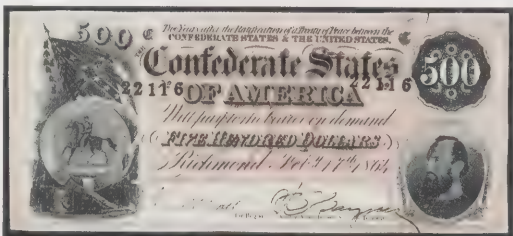 500 Two Years after the Ratification of a Treaty of Peace between the
CONFEDERATE STATES & THE UNITED STATES,
THE
Confederate States 500
22116 22116
OF AMERICA
Will pay to the bearer on demand
FIVE HUNDRED DOLLARS
Richmond Feb. 17th 1864